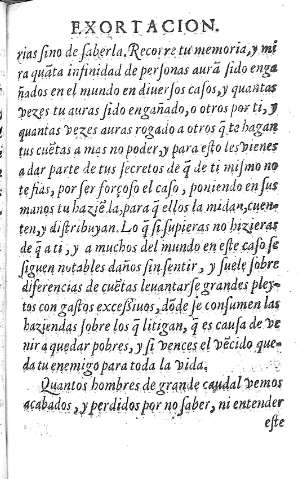 EXORTACION.
rias sino de saberla. Recorre tu memoria, y mi
ra quãta infinidad de personas aurã sido enga
ñados en el mundo en diuersos casos, y quantas
vezes tu auras sido engañado, o otros por ti, y
quantas vezes auras rogado a otros q̃ te hagan
tus cuẽtas a mas no poder, y para esto les vienes
a dar parte de tus secretos de q̃ de ti mismo no
te fias, por ser forçoso el caso, poniendo en sus
manos tu haziẽda, para q̃ ellos la midan, cuen-
ten, y distribuyan. Lo q̃ si supieras no hizieras
de q̃ a ti, y a muchos del mundo en este caso se
siguen notables daños sin sentir, y suelẽ sobre
diferencias de cuẽtas leuantarse grandes pley-
tos con gastos excessiuos, dõde se consumen las
haziendas sobre los q̃ litigan, q̃ es causa de ve
nir a quedar pobres, y si vences el vẽcido que-
da tu enemigo para toda la vida.
Quantos hombres de grande caudal vemos
acabados, y perdidos por no saber, ni entender
este